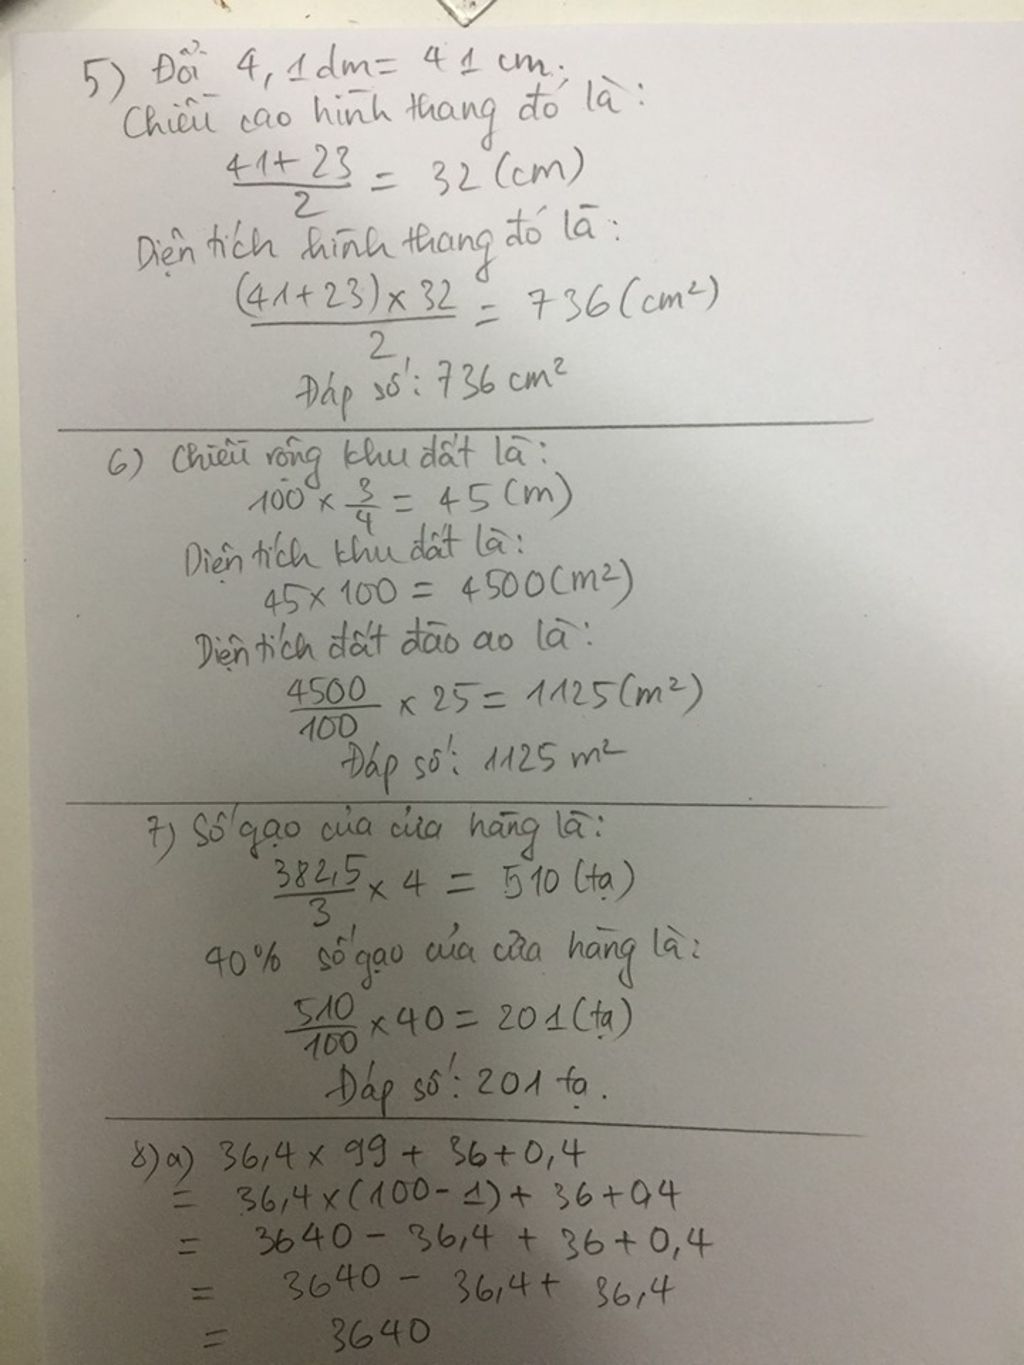 5) Đổi 4,1dm = 41 cm.
Chiều cao hình thang đó là:
(41+23)/2 = 32 (cm)
Diện tích hình thang đó là:
((41+23) x 32)/2 = 736 (cm²)
Đáp số: 736 cm²
6) Chiều rộng khu đất là:
100 x 3/4 = 45 (m)
Diện tích khu đất là:
45 x 100 = 4500 (m²)
Diện tích đất đào ao là:
4500/100 x 25 = 1125 (m²)
Đáp số: 1125 m²
7) Số gạo của cửa hàng là:
382,5/3 x 4 = 510 (tạ)
40% số gạo của cửa hàng là:
510/100 x 40 = 201 (tạ)
Đáp số: 201 tạ.
8) a) 36,4 x 99 + 36 + 0,4
= 36,4 x (100 - 1) + 36 + 0,4
= 3640 - 36,4 + 36 + 0,4
= 3640 - 36,4 + 36,4
= 3640